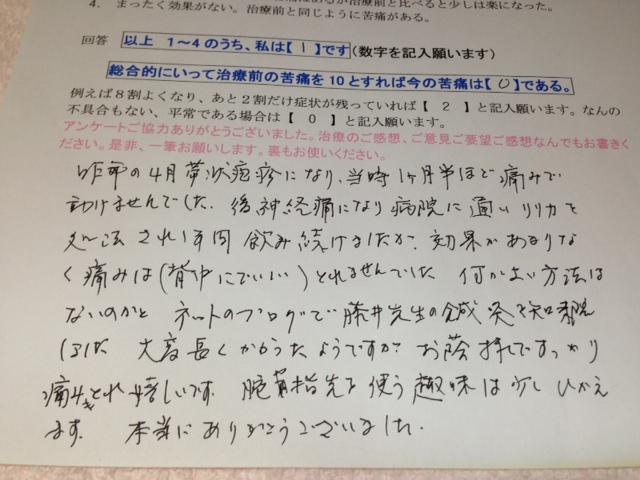 4. まったく効果がない。治療前と同じように苦痛がある。
回答 以上 1～4のうち、私は【 1 】です (数字を記入願います)
総合的にいって治療前の苦痛を10とすれば今の苦痛は【 0 】である。
例えば8割よくなり、あと2割だけ症状が残っていれば【 2 】と記入願います。なんの
不具合もない、平常である場合は【 0 】と記入願います。
アンケートご協力ありがとうございました。治療のご感想、ご意見ご要望ご感想なんでもお書きく
ださい。是非、一筆お願いします。裏もお使いください。
昨年の4月帯状疱疹になり、当時1ヶ月半ほど痛みで
動けませんでした。後神経痛になり病院に通いリリカを
処法され1年間飲み続けましたが、効果があまりな
く痛みは(背中に) とれませんでした 何か良い方法は
ないのかと ネットのブログで藤井先生の鍼灸を知り来院
しました 大変長くかかったようですが お蔭様ですっかり
痛みもとれ嬉しいです。腕肩指先を使う趣味は少しひかえ
ます。 本当にありがとうございました。